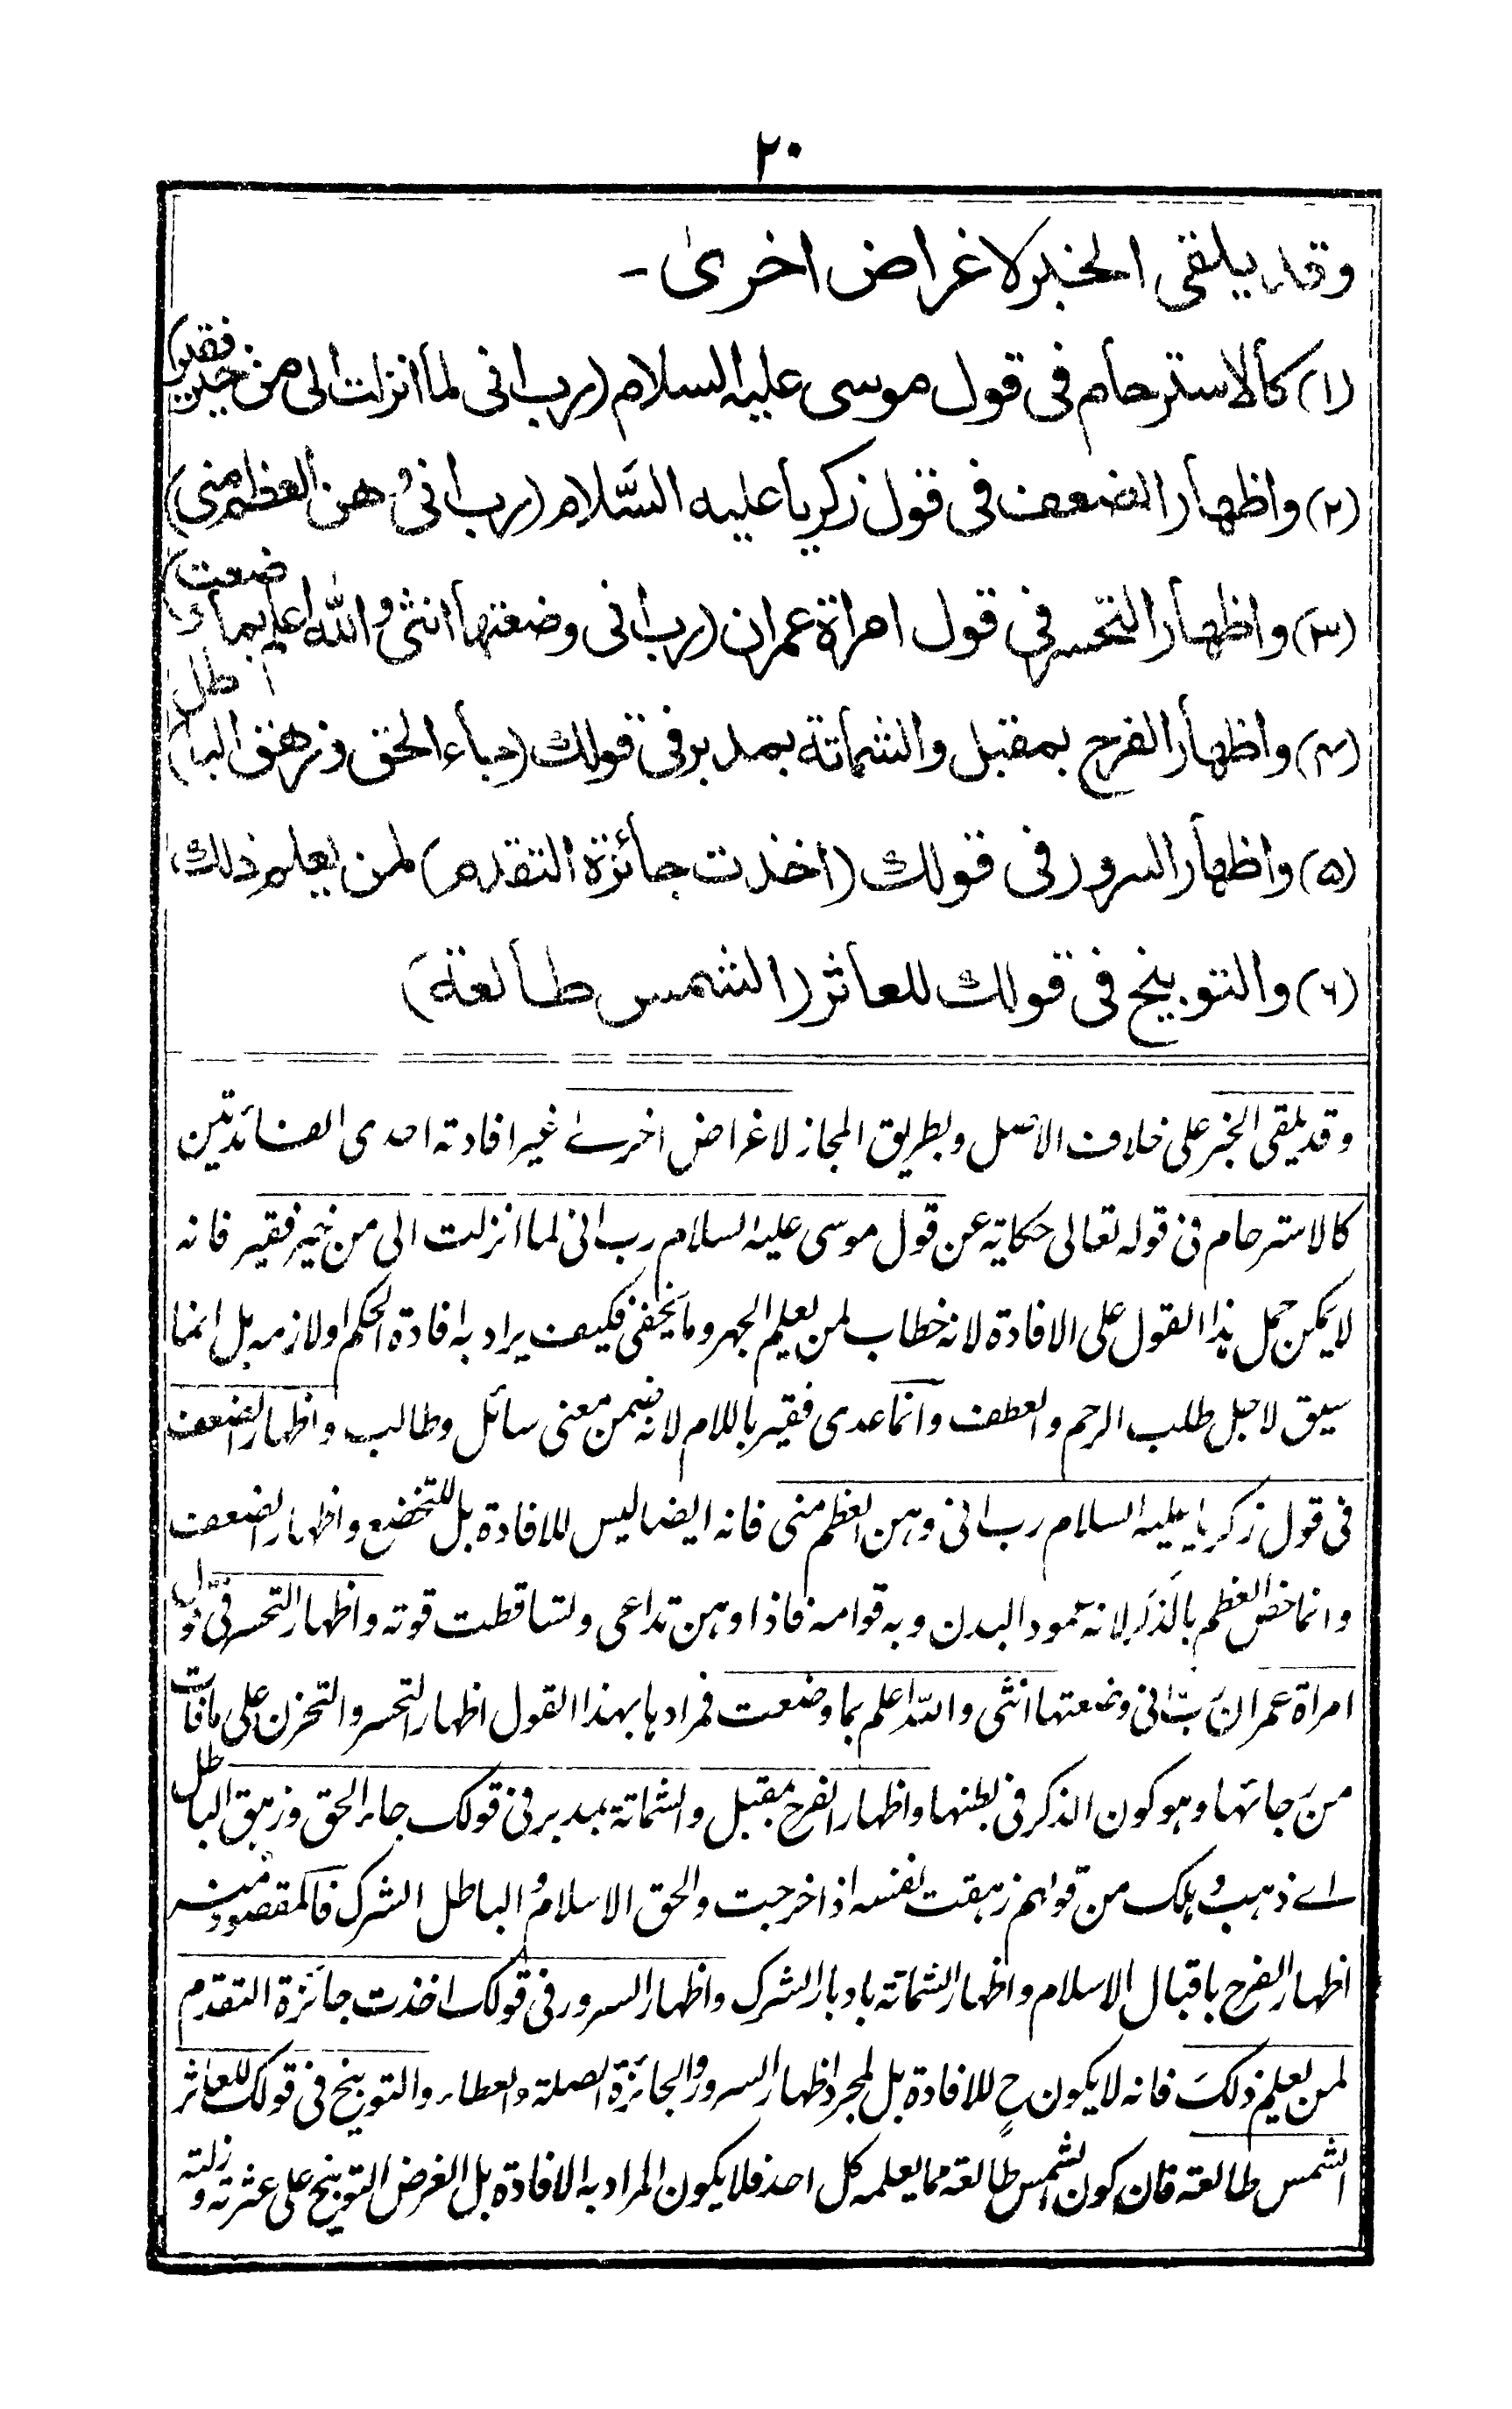 ٢٠
وقد يلقى الخبر لاغراض اخرىٰ -
(١) كالاسترحام فى قول موسى عليه السلام (رب انى لما انزلت الى من خير فقير)
(٢) واظهار الضعف فى قول زكريا عليه السَّلام (رب انى وهن العظم منى)
(٣) واظهار التحسر فى قول امراة عمران (رب انى وضعتها انثى والله اعلم بما وضعت)
(۴) واظهار الفرح بمقبل والشماتة بمدبر فى قولك (جاء الحق وزهق الباطل)
(۵) واظهار السرور فى قولك (اخذت جائزة التقدم) لمن يعلم ذلك
(۶) والتوبيخ فى قولك للعاثر (الشمس طالعة)
وقد يلقى الخبر على خلاف الاصل وبطريق المجاز لاغراض اخرے غير افادته احدى الفائدتين
كالاسترحام فى قوله تعالى حكاية عن قول موسى عليه السلام رب انى لما انزلت الى من خير فقير فانه
لا يمكن حمل هذا القول على الافادة لانه خطاب لمن يعلم الجهر وما يخفى فكيف يراد به افادة الحكم او لازمه بل انما
سيق لاجل طلب الرحم والعطف وانما عدى فقير باللام لانه ضمن معنى سائل وطالب واظهار الضعف
فى قول زكريا عليه السلام رب انى وهن العظم منى فانه ايضا ليس للافادة بل للتخضع واظهار الضعف
وانما خص العظم بالذكر لانه عمود البدن وبه قوامه فاذا وهن تداعى وتساقطت قوته واظهار التحسر فى قول
امراة عمران رب انى وضعتها انثى والله اعلم بما وضعت فمرادها بهذا القول اظهار التحسر والتحزن على ما فات
من رجائها وهو كون الذكر فى بطنها واظهار الفرح بمقبل والشماتة بمدبر فى قولك جاء الحق وزهق الباطل
اے ذهب وهلك من قولهم زهقت نفسه اذا خرجت والحق الاسلام والباطل الشرك فالمقصود منه
اظهار الفرح باقبال الاسلام واظهار الشماتة بادبار الشرك واظهار السرور فى قولك اخذت جائزة التقدم
لمن يعلم ذلك فانه لا يكون ح للافادة بل لمجرد اظهار السرور والجائزة الصلة والعطاء والتوبيخ فى قولك للعاثر
الشمس طالعة فان كون الشمس طالعة مما يعلمه كل احد فلا يكون المراد به الافادة بل الغرض التوبيخ على عثرته وزلته